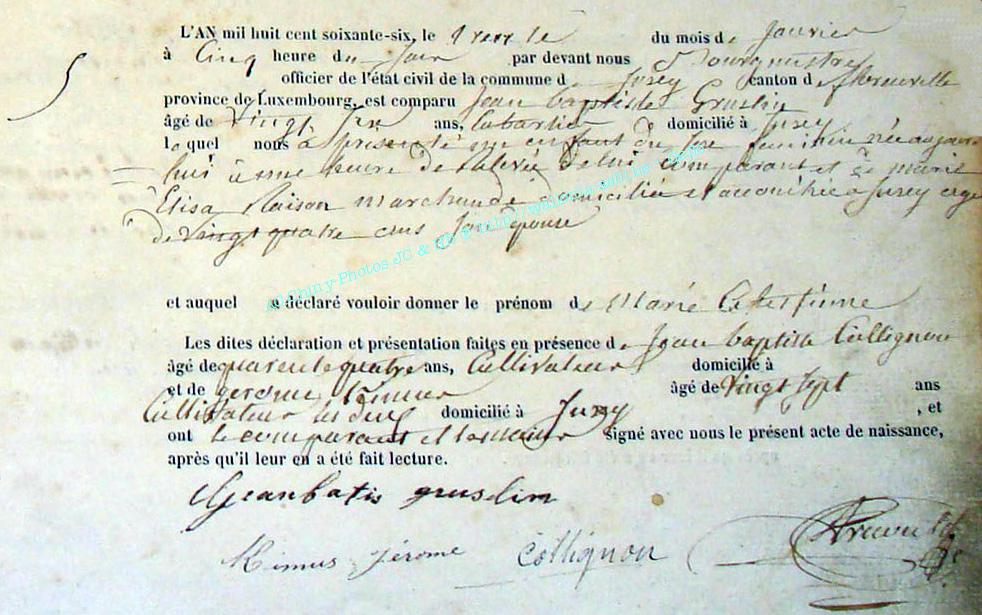 5
L'AN mil huit cent soixante-six, le du mois de Janvier
à Cinq heure du Soir par devant nous Bourgmestre
officier de l'état civil de la commune de Jusey canton de
province de Luxembourg, est comparu Jean baptiste Gruslin
âgé de vingt ans, Cabartier domicilié à Jusey
laquel nous a presenté un enfant du sexe feminin née aujour
hui à une heure de relevée de lui comparant et de marie
Elisa Raison marchande domiciliée et accouchée a Jusey agee
de vingt quatre ans Son épouse
et auquel a déclaré vouloir donner le prénom de Marie Celestinne
Les dites déclaration et présentation faites en présence de Jean baptiste Collignon
âgé de quarente quatre ans, Cultivateur domicilié à
et de gerome âgé de vingt sept ans
Cultivateur les deux domicilié à Jusey , et
ont le comparant et temoins signé avec nous le présent acte de naissance,
après qu'il leur en a été fait lecture.
Jeanbatis gruslin
Jérome Collignon